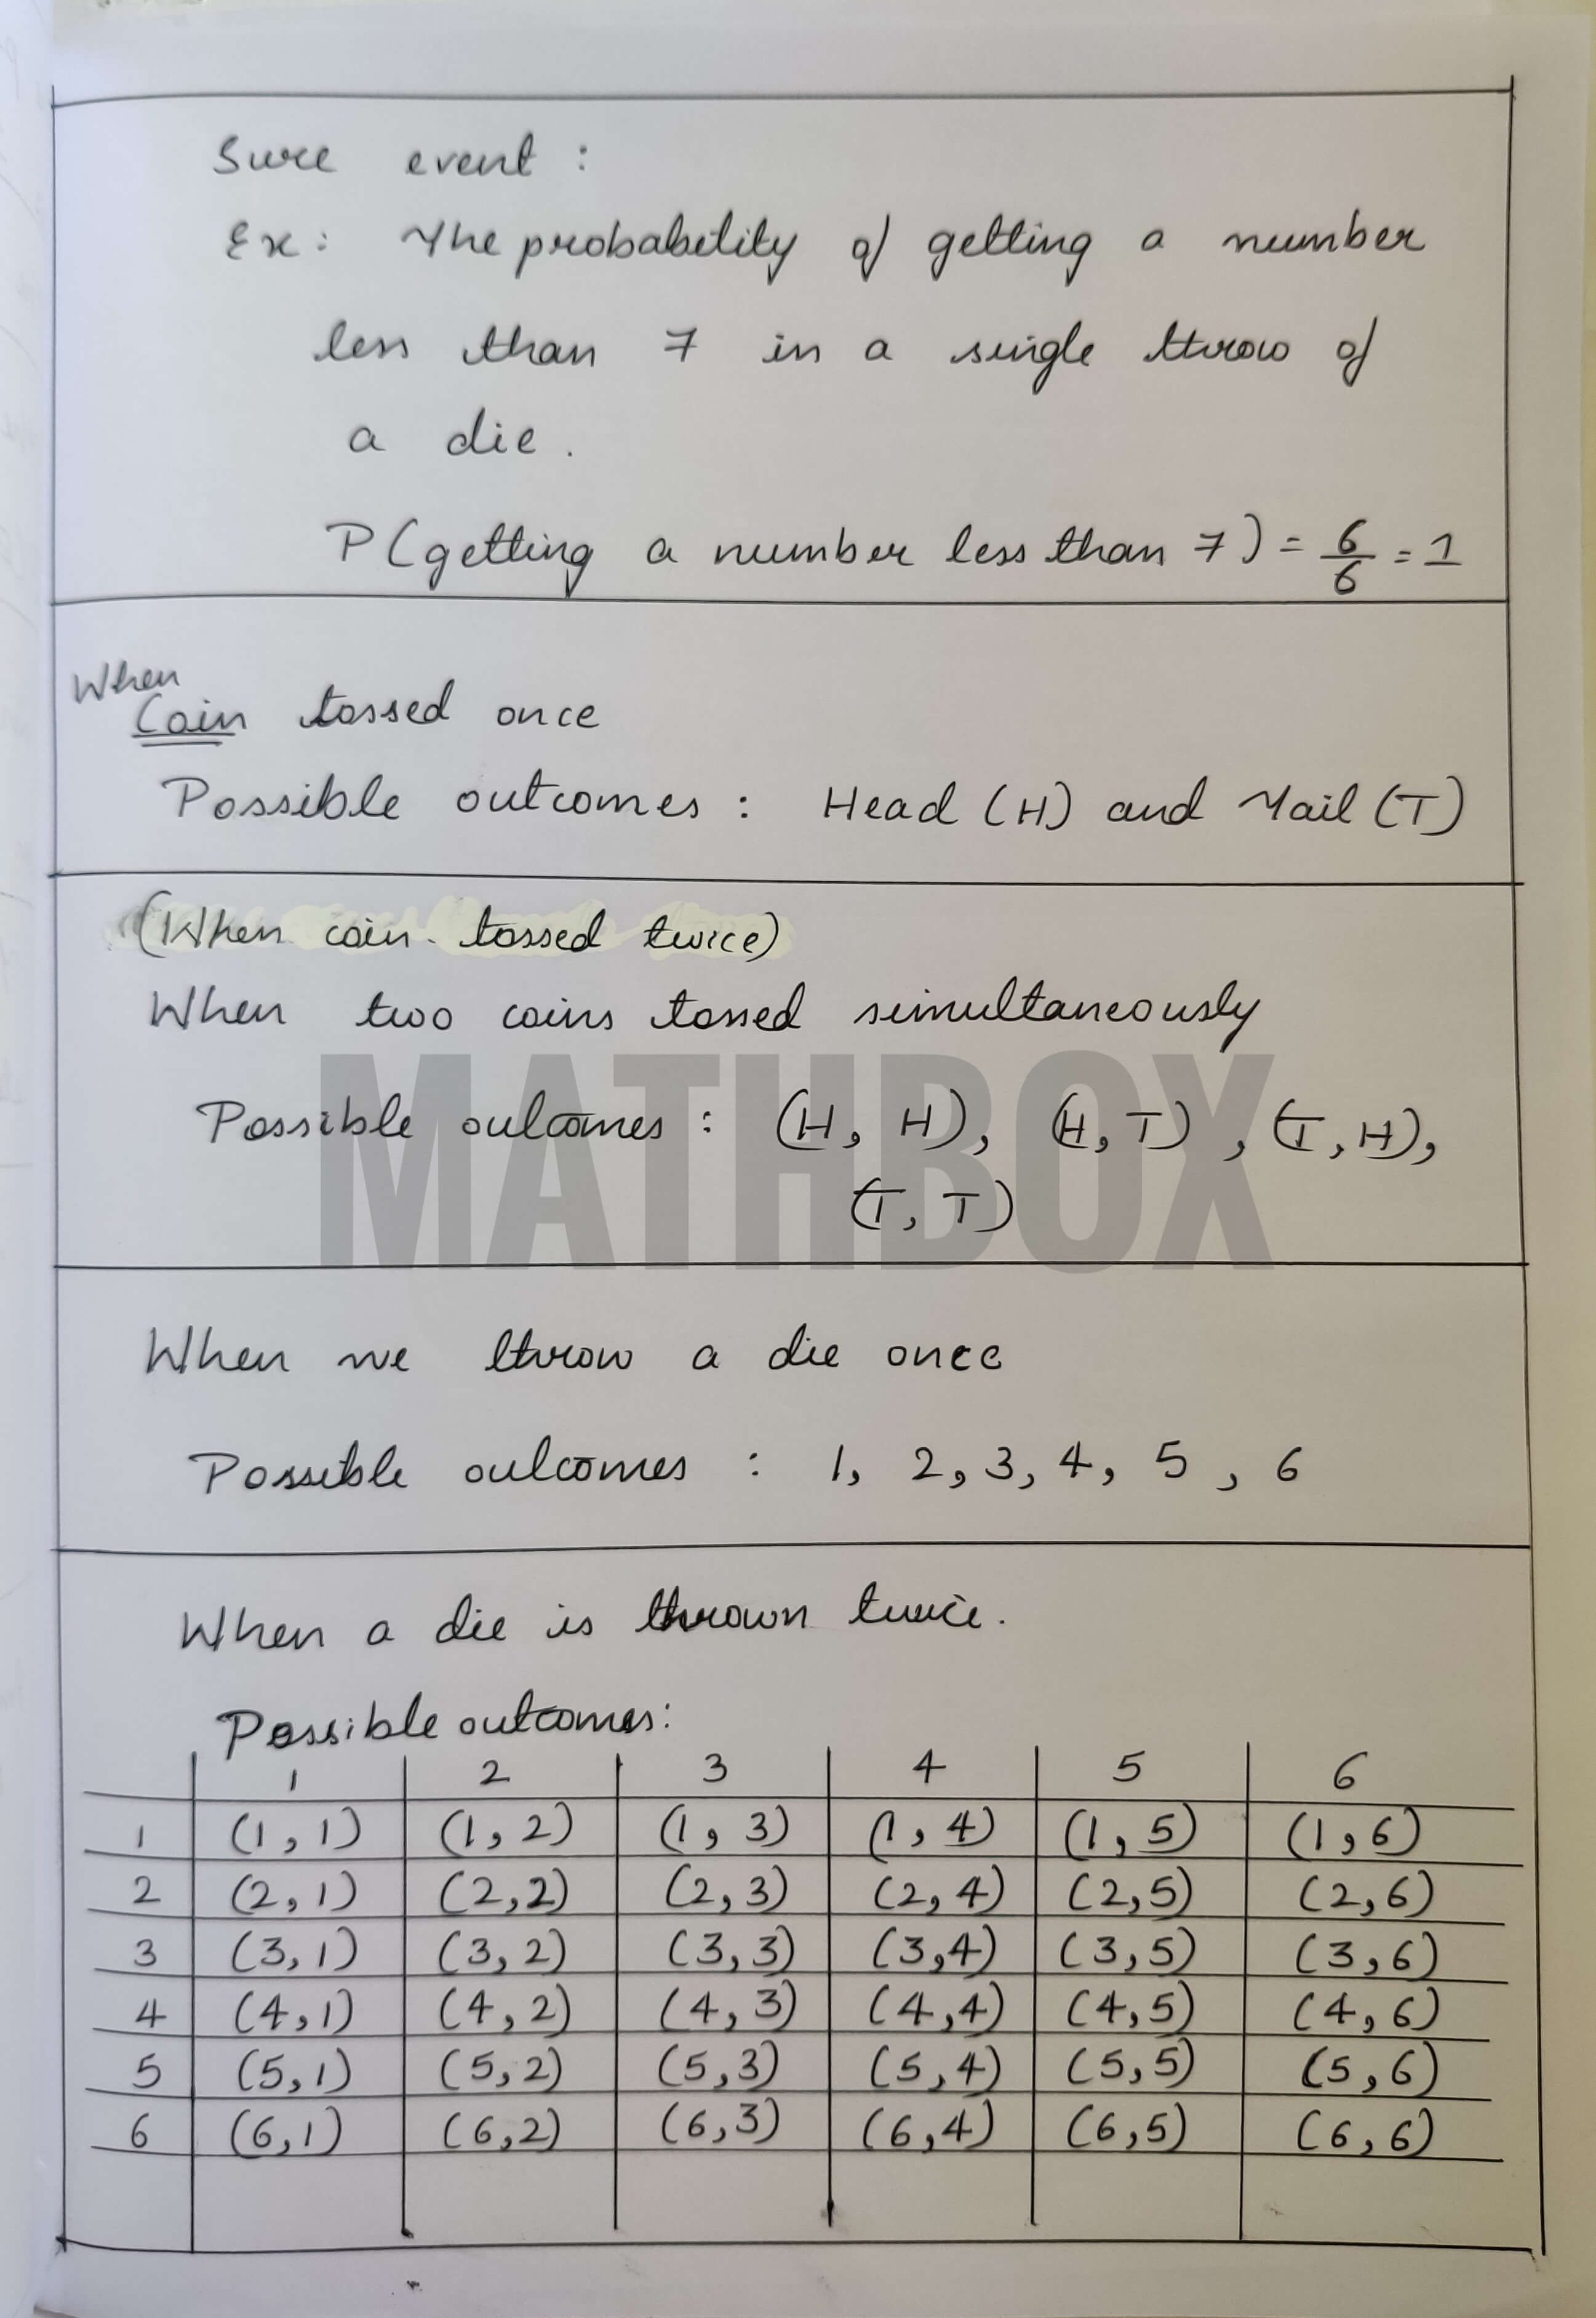 Sure event :
Ex : The probability of getting a number
less than 7 in a single throw of
a die.
P(getting a number less than 7) = 6/6 = 1
When
Coin tossed once
Possible outcomes : Head (H) and Tail (T)
(When coin tossed twice)
When two coins tossed simultaneously
Possible outcomes : (H, H), (H, T), (T, H),
(T, T)
MATHBOX
When we throw a die once
Possible outcomes : 1, 2, 3, 4, 5, 6
When a die is thrown twice.
Possible outcomes:
1 2 3 4 5 6
1 (1, 1) (1, 2) (1, 3) (1, 4) (1, 5) (1, 6)
2 (2, 1) (2, 2) (2, 3) (2, 4) (2, 5) (2, 6)
3 (3, 1) (3, 2) (3, 3) (3, 4) (3, 5) (3, 6)
4 (4, 1) (4, 2) (4, 3) (4, 4) (4, 5) (4, 6)
5 (5, 1) (5, 2) (5, 3) (5, 4) (5, 5) (5, 6)
6 (6, 1) (6, 2) (6, 3) (6, 4) (6, 5) (6, 6)